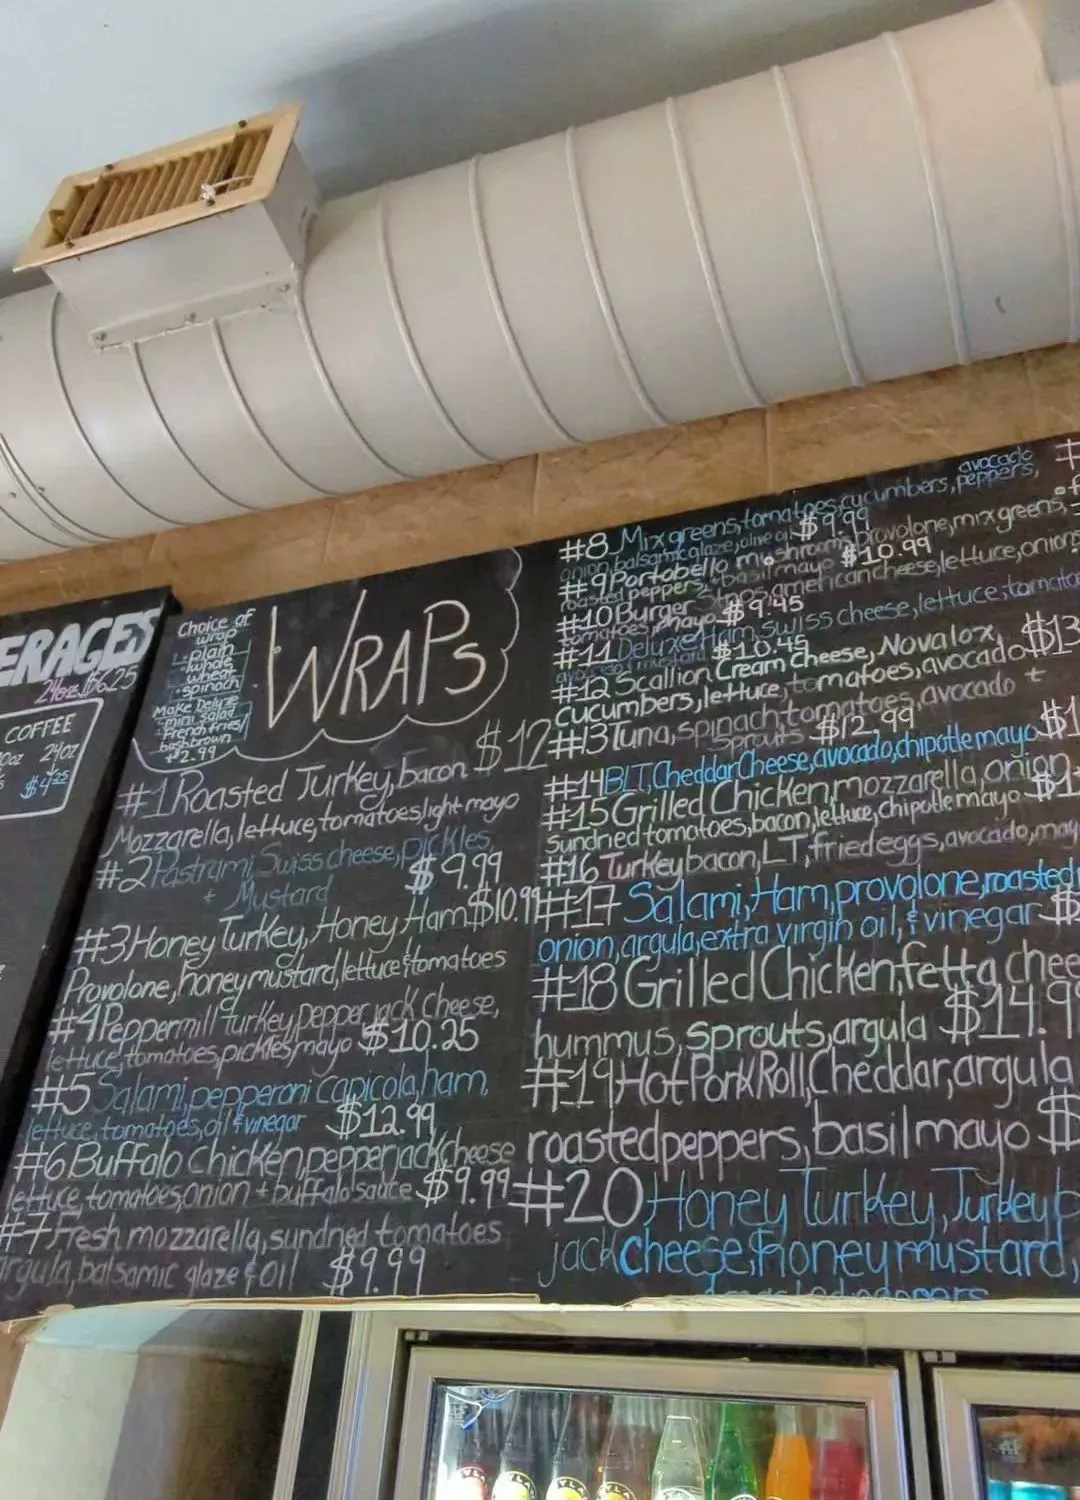 ERAGES
24oz. $6.25
COFFEE
0oz 24oz
$4.25
Choice of
wrap
plain
whole
wheat
spinach
Make Deluxe
mini salad
French fries/
hashbrown
$2.99
WRAPS
#1 Roasted Turkey, bacon $12
Mozzarella, lettuce, tomatoes, light mayo
#2 Pastrami, Swiss cheese, pickles,
+ Mustard $9.99
#3 Honey Turkey, Honey Ham $10.99
Provolone, honey mustard, lettuce & tomatoes
#4 Peppermill turkey, pepper jack cheese,
lettuce, tomatoes, pickles, mayo $10.25
#5 Salami, pepperoni capicola, ham,
lettuce, tomatoes, oil & vinegar $12.99
#6 Buffalo chicken, pepperjack cheese
lettuce, tomatoes, onion + buffalo sauce $9.99
#7 Fresh mozzarella, sundried tomatoes
argula, balsamic glaze & oil $9.99
avocado
#8 Mix greens, tomatoes, cucumbers, peppers,
onion, balsamic glaze, olive oil $9.99
#9 Portobello mushroom, provolone, mix greens,
roasted peppers + basil mayo $10.99
#10 Burger american cheese, lettuce, onions
tomatoes, mayo $9.45
#11 Deluxe Ham, swiss cheese, lettuce, tomatoes
mustard $10.45
#12 Scallion Cream Cheese, Nova lox, $13
cucumbers, lettuce, tomatoes, avocado
#13 Tuna, spinach, tomatoes, avocado +
Sprouts $12.99
#14 BLT, Cheddar Cheese, avocado, chipotle mayo $1
#15 Grilled Chicken, mozzarella, onion
sundried tomatoes, bacon, lettuce, chipotle mayo $1
#16 Turkey bacon, LT, fried eggs, avocado, may
#17 Salami, Ham, provolone, roasted
onion, argula, extra virgin oil, & vinegar $
#18 Grilled Chicken, fetta chee
hummus, sprouts, argula $14.9
#19 Hot Pork Roll, Cheddar, argula
roasted peppers, basil mayo $
#20 Honey Turkey, Turkey p
jack cheese, Honey mustard,
roasted peppers